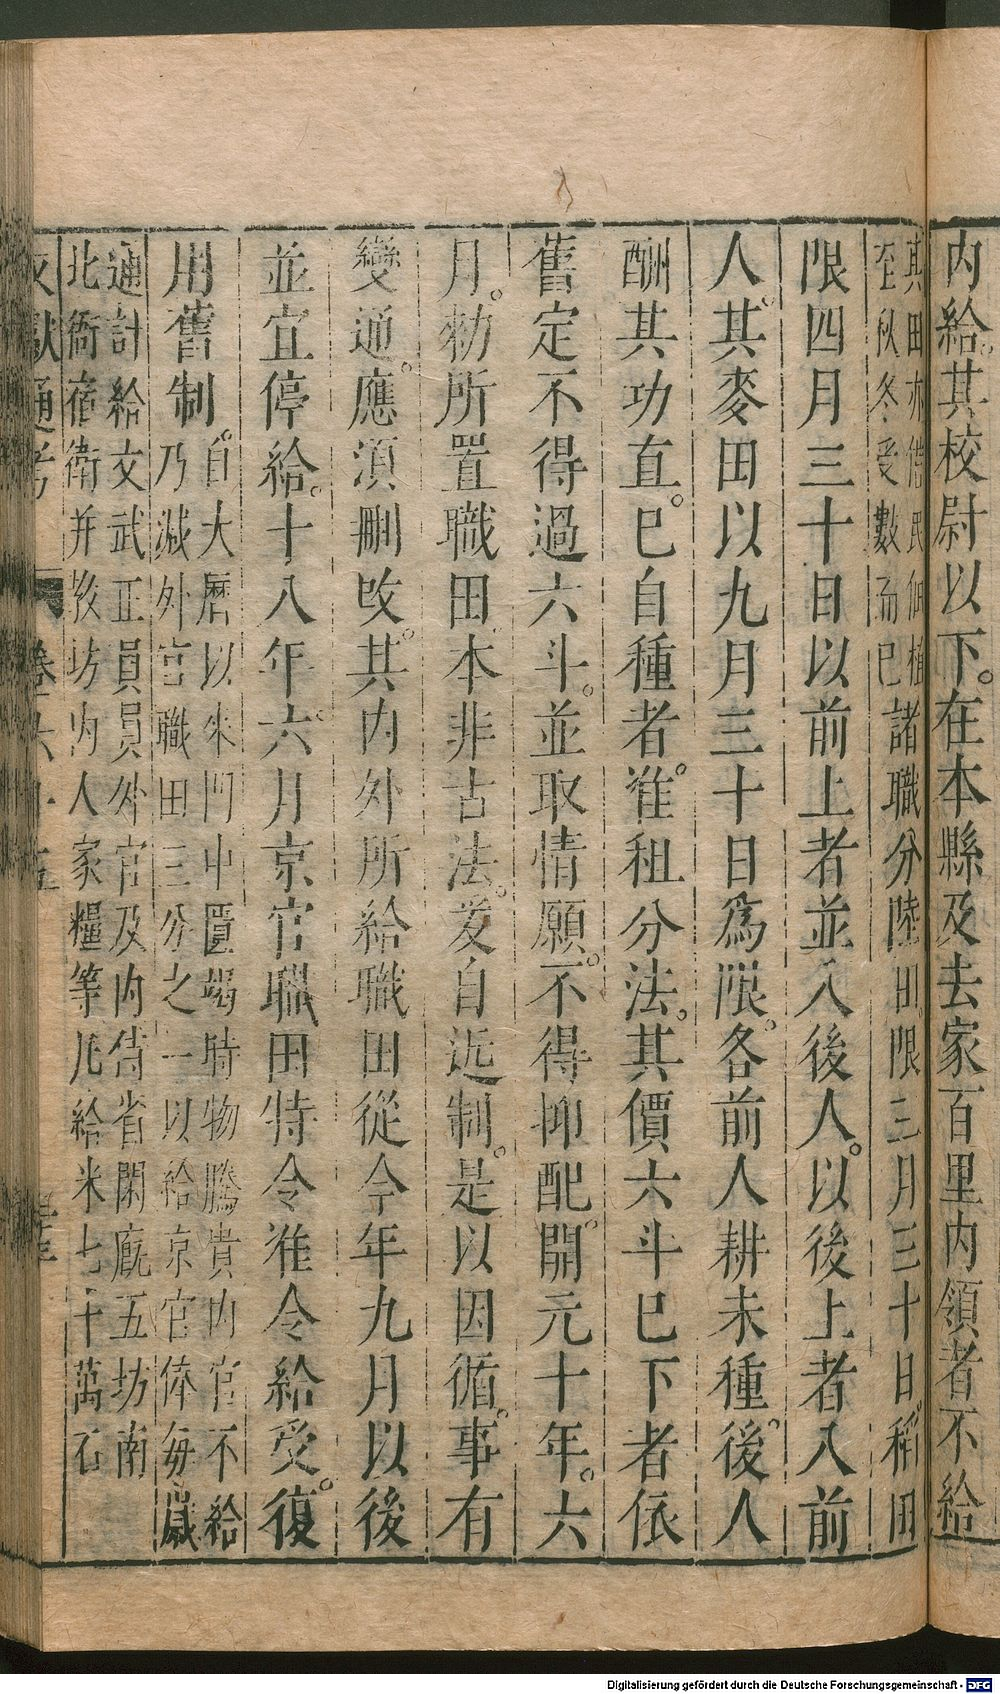 内給。其校尉以下。在本縣及去家百里内領者不給
其田亦借民佃植
至秋冬受數而已
諸職分陸田。限三月三十日。稻田
限四月三十日以前上者並入後人。以後上者入前
人。其麥田以九月三十日爲限。各前人耕未種。後人
酬其功直。已自種者。准租分法。其價六斗已下者依
舊定不得過六斗。並取情願。不得抑配。開元十年。六
月。勑所置職田。本非古法。爰自近制。是以因循。事有
變通。應須刪改。其内外所給職田從今年九月以後
並宜停給。十八年。六月京官職田特令准令給受。復
用舊制。
自大曆以來門中匱竭時物騰貴内官不給
乃減外官職田三分之一以給京官俸每歲
通計給文武正員員外官及内侍省閑廐五坊南
北衙宿衛并敎坊内人家糧等凡給米七十萬石
文獻通考 卷六十五
Digitalisierung gefördert durch die Deutsche Forschungsgemeinschaft - DFG